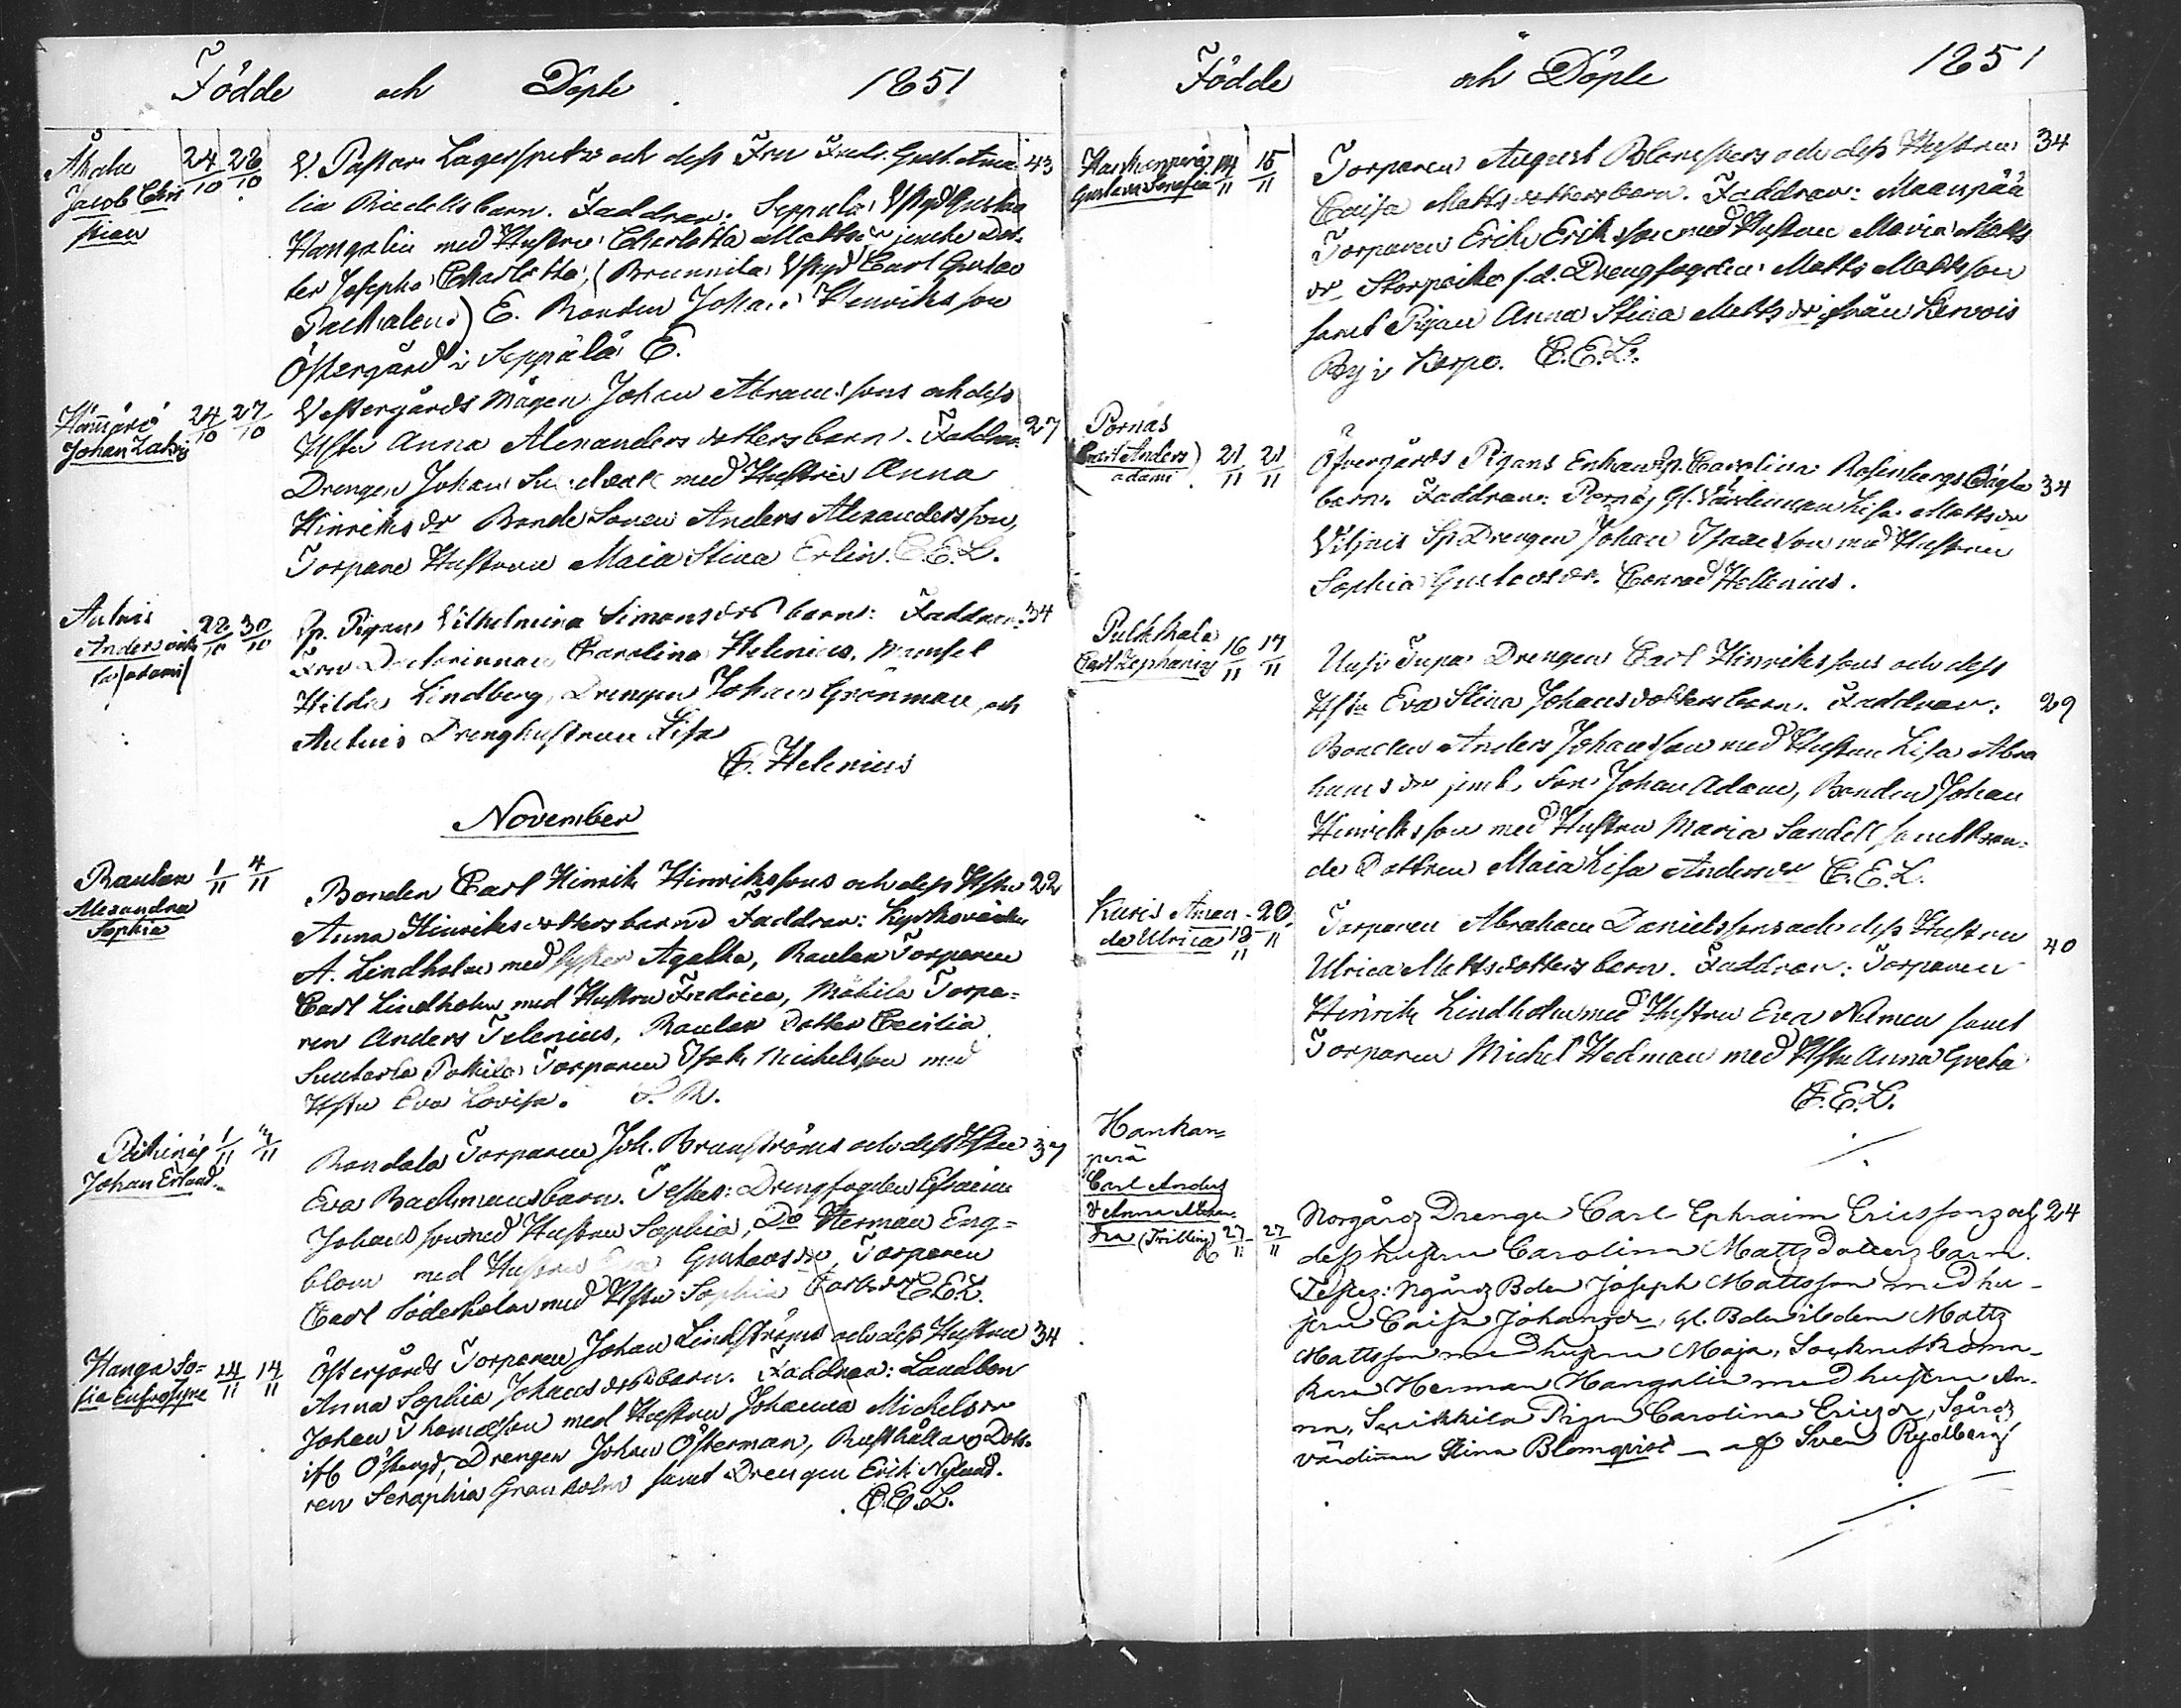 Födde och Döpte 1851
Jacob Chri
stian
24/10 28/10
V. Pastor Lagerspetz och dess Fru Fredr. Gust. Ama- 43
lia Riedells barn. Faddrar:
Hangalin med Hustru Charlotta jemte Dot-
ter Josepha Charlotta, Carl Gustav
E. Bonden Johan Henriksson
Östergård i Seppälä E.
Johan
24/10 27/10
Vestergårds Mågen Johan Abramssons och dess
Hstu Anna Alexanders dotters barn. Faddrar: 27
Drengen Johan med Hustru Anna
Hinriks dr Bonde Sonen Anders Alexandersson,
Torpare Hustrun Maia Stina Erlin. C.E.L.
Anders
22/10 30/10
Sp. Pigans Vilhelmina Simonsdrs barn: Faddrar: 34
Fru Doctorinnan Carolina Helenius, Mamsel
Hilda Lindberg, Drengen Johan Grönman, och
Drenghustrun Lisa
C. Helenius
November
Raulan 1/11 4/11
Alexandra
Sophia
Bonden Carl Hinrik Hinrikssons och dess Hstu 22
Anna Hinriksdotters barn Faddrar:
A. Lindholm med syster Agatha, Raulan Torparen
Carl Lindholm med Hustru Fredrica, Mäkilä Torpa-
ren Anders Telenius, Raulan Dotter Cecilia
Torparen Isak Michelsson med
Hstu Eva Lovisa. S. R.
1/11
Johan Erland
Torparen Joh. Brunströms och dess Hstu 37
Eva Bachmans barn. Testes: Drengfogden Efraim
Johansson med Hustru Sophia, Do Herman Eng-
blom med Hustru Eva Gustavsdr, Torparen
Carl Söderholm med Hstu Sophia C.E.L.
Hanga So-
fia Eufrosyne 14/11 14/11
Östergårds Torparen Johan Lindströms och dess Hustru 34
Anna Sophia Johansdrs barn. Faddrar: Landbon
Johan Thomasson med Hustru Johanna Michelsdr
Östergd, Drengen Johan Österman, Rusthållare Dott-
ren Seraphia Granholm samt Drengen Erik Nylund.
C.E.L.
Födde och Döpte 1851
Gustava Serafia 14/11 15/11
Torparen August Blomsters och dess Hustru 34
Caisa Mattsdotters barn. Faddrar: Maanpää
Torparen Erik Eriksson med Hustru Maria Matts
dr f.d. Drengfogden Matts Mattsson
samt Pigan Anna Stina Mattsdr ifrån Kervois
By i Korpo. C.E.L.
Pornäs
Carl Anders
adami 21/11 21/11
Öfvergårds Pigans Enkans Carolina Rosenbergs oägta 34
barn. Faddrar: Pornäs Gl. Värdinnan Lisa Mattsdr
Viljais Sp Drengen Johan Isaacson med Hustru
Sophia Gustavsdr. Conrad Hellenius.
Pulkkala
Carl Zephanias 16/11 17/11
Uusi Tupa Drengen Carl Hinrikssons och dess
Hstu Eva Stina Johansdotters barn. Faddrar: 29
Bonden Anders Johansson med Hustru Lisa Abra
hamsdr jemte Son Johan Adam, Bonden Johan
Henriksson med Hustru Maria Sandell samt Bon-
de Dottren Maia Lisa Andersdr C.E.L.
Kuris Aman-
da Ulrica 18/11 20/11
Torparen Abraham Danielssons och dess Hustru
Ulrica Mattsdotters barn. Faddrar: Torparen 40
Henrik Lindholm med Hustru Eva Nilman samt
Torparen Michel Hedman med Hstu Anna Greta
C.E.L.
Hankan-
perä
Carl Anders
(Trilling) 27/11 27/11
Norgårds Drengen Carl Ephraim Ericssons och 24
dess hustru Carolina Mattsdotters barn.
Testes: Ngårds Bden Joseph Mattsson med hu-
stru Caisa Johansdr, Gl. Bden ibidem Matts
Mattsson med hustru Maja, Socknetskoma-
karen Herman Hangelin med hustru An-
na, Pigan Carolina Ericsdr, Sgårds
värdinnan Stina Blomqvist - af Sven Rydberg